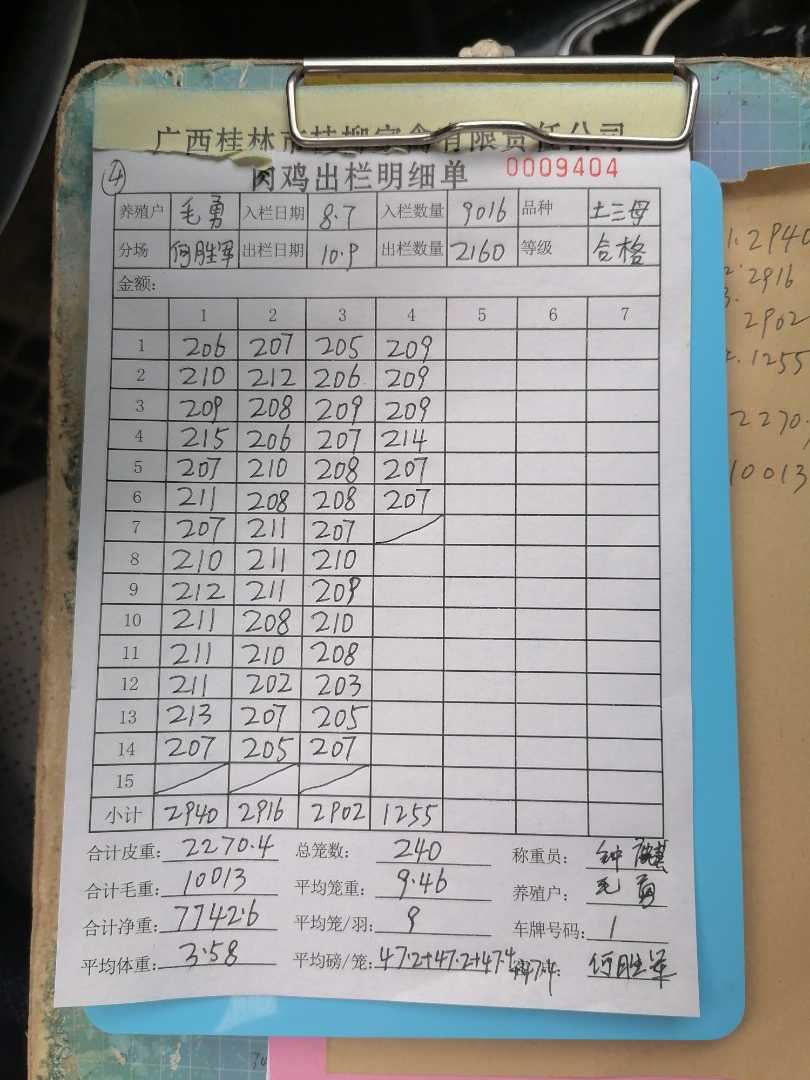 广西桂林市桂柳家禽有限责任公司
④ 肉鸡出栏明细单 0009404
养殖户 毛勇 入栏日期 8.7 入栏数量 9016 品种 土三母
分场 何胜军 出栏日期 10.9 出栏数量 2160 等级 合格
金额:
1 2 3 4 5 6 7
1 206 207 205 209
2 210 212 206 209
3 209 208 209 209
4 215 206 207 214
5 207 210 208 207
6 211 208 208 207
7 207 211 207
8 210 211 210
9 212 211 209
10 211 208 210
11 211 210 208
12 211 202 203
13 213 207 205
14 207 205 207
15
小计 2940 2916 2902 1255
合计皮重: 2270.4 总笼数: 240 称重员: 钟
合计毛重: 10013 平均笼重: 9.46 养殖户: 毛勇
合计净重: 7742.6 平均笼/羽: 9 车牌号码: 1
平均体重: 3.58 平均磅/笼: 47.2+47.2+47.4 何胜军
1. 2940
2. 2916
3.
2902
1255
2270.
10013